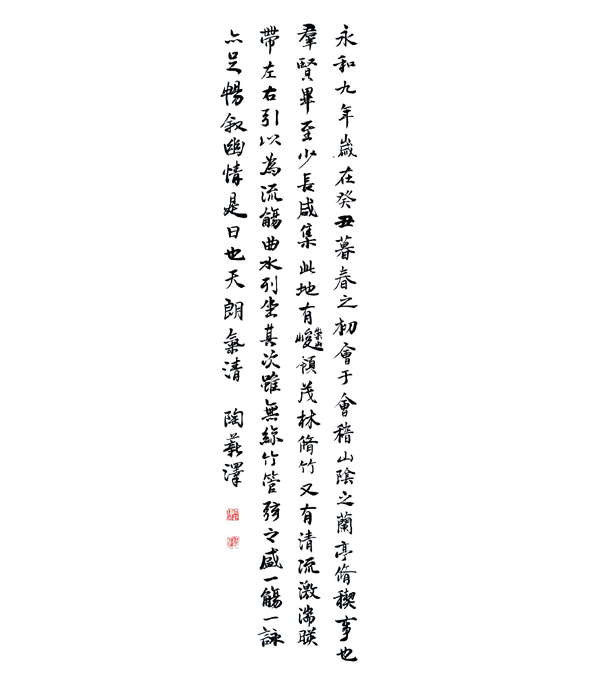 永和九年歲在癸丑暮春之初會于會稽山陰之蘭亭脩稧事也
羣賢畢至少長咸集此地有崇山峻領茂林脩竹又有清流激湍暎
帶左右引以為流觴曲水列坐其次雖無絲竹管弦之盛一觴一詠
亦足暢叙幽情是日也天朗氣清 陶澤